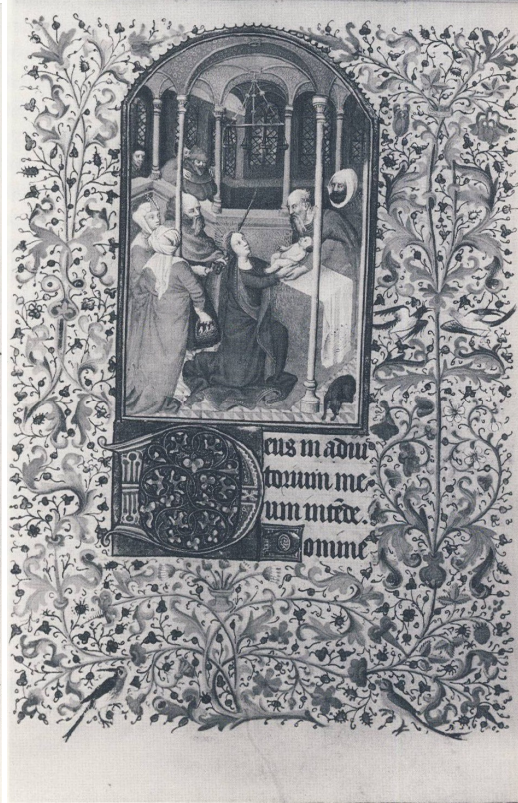 Deus in adiu
torium me
um intēde.
Domine